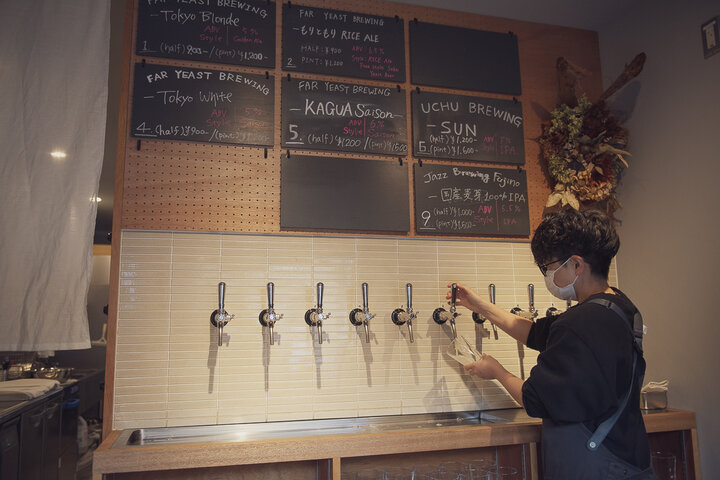 Tokyo Blonde
ABV 5%
Style Golden Ale
1. (half) ¥900 / (pint) ¥1,200
FAR YEAST BREWING
もりともり RICE ALE
HALF: ¥900
PINT: ¥1,200
ABV
Style: RICE
2.
FAR YEAST BREWING
— Tokyo White —
ABV 5%
Style
4. (half) ¥900 / (pint) ¥1,200
FAR YEAST BREWING
— KAGUA Saison —
ABV 6%
Style Saison
5. (half) ¥1,200 / (pint) ¥1,500
UCHU BREWING
— SUN —
6. (half) ¥1,200 ABV
(pint) ¥1,600 Style IPA
Jazz Brewing Fujino
— 国産麦芽100% IPA
9 (half) ¥1,000- ABV 5.5%
(pint) ¥1,500- Style IPA